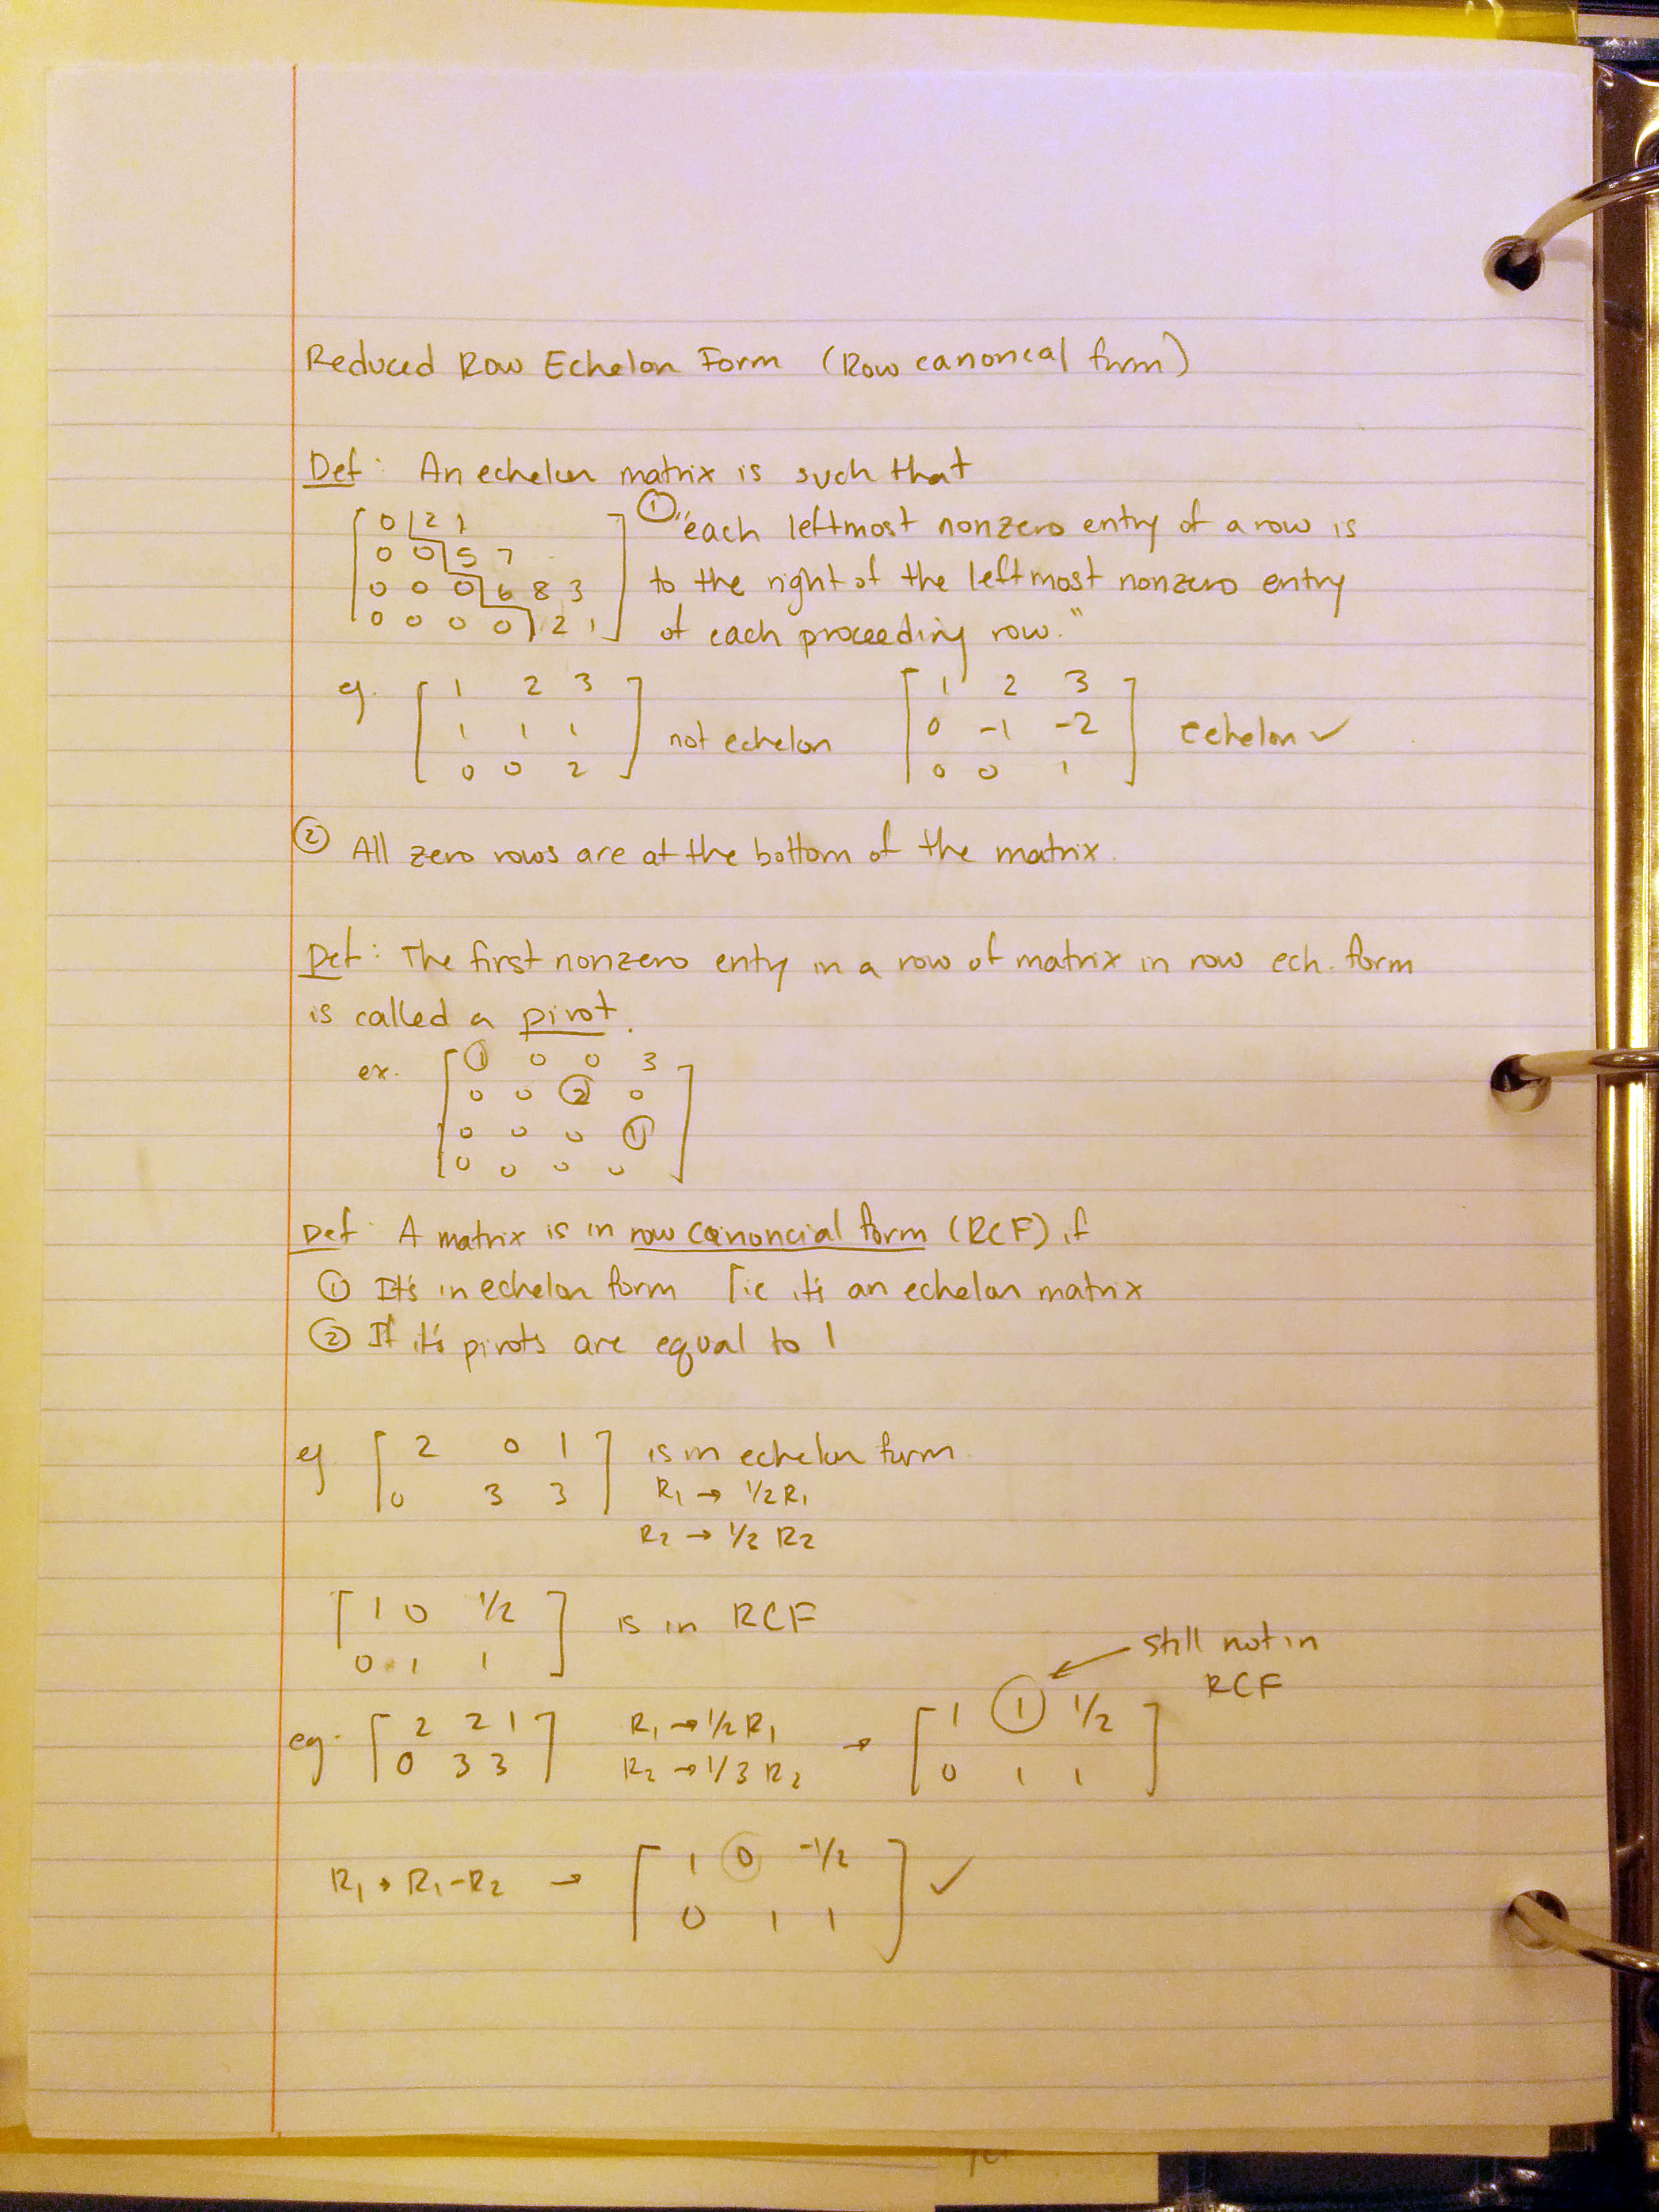 Reduced Row Echelon Form (Row canonical form)
Def: An echelon matrix is such that
[0 2 1
0 0 5 7
0 0 0 6 8 3
0 0 0 0 1 2 1]
① "each leftmost nonzero entry of a row is
to the right of the leftmost nonzero entry
of each proceeding row."
eg. [1 2 3
1 1 1
0 0 2] not echelon
[1 2 3
0 -1 -2
0 0 1] echelon ✓
② All zero rows are at the bottom of the matrix.
Def: The first nonzero entry in a row of matrix in row ech. form
is called a pivot.
ex. [① 0 0 3
0 0 ② 0
0 0 0 ①
0 0 0 0]
Def: A matrix is in row canoncial form (RCF) if
① It's in echelon form [ie it's an echelon matrix
② If it's pivots are equal to 1
eg [2 0 1
0 3 3] is in echelon form.
R1 → 1/2 R1
R2 → 1/3 R2
[1 0 1/2
0 1 1] is in RCF
still not in
RCF
eg. [2 2 1
0 3 3]
R1 → 1/2 R1
R2 → 1/3 R2
→ [1 ① 1/2
0 1 1]
R1 → R1-R2 → [1 0 -1/2
0 1 1] ✓